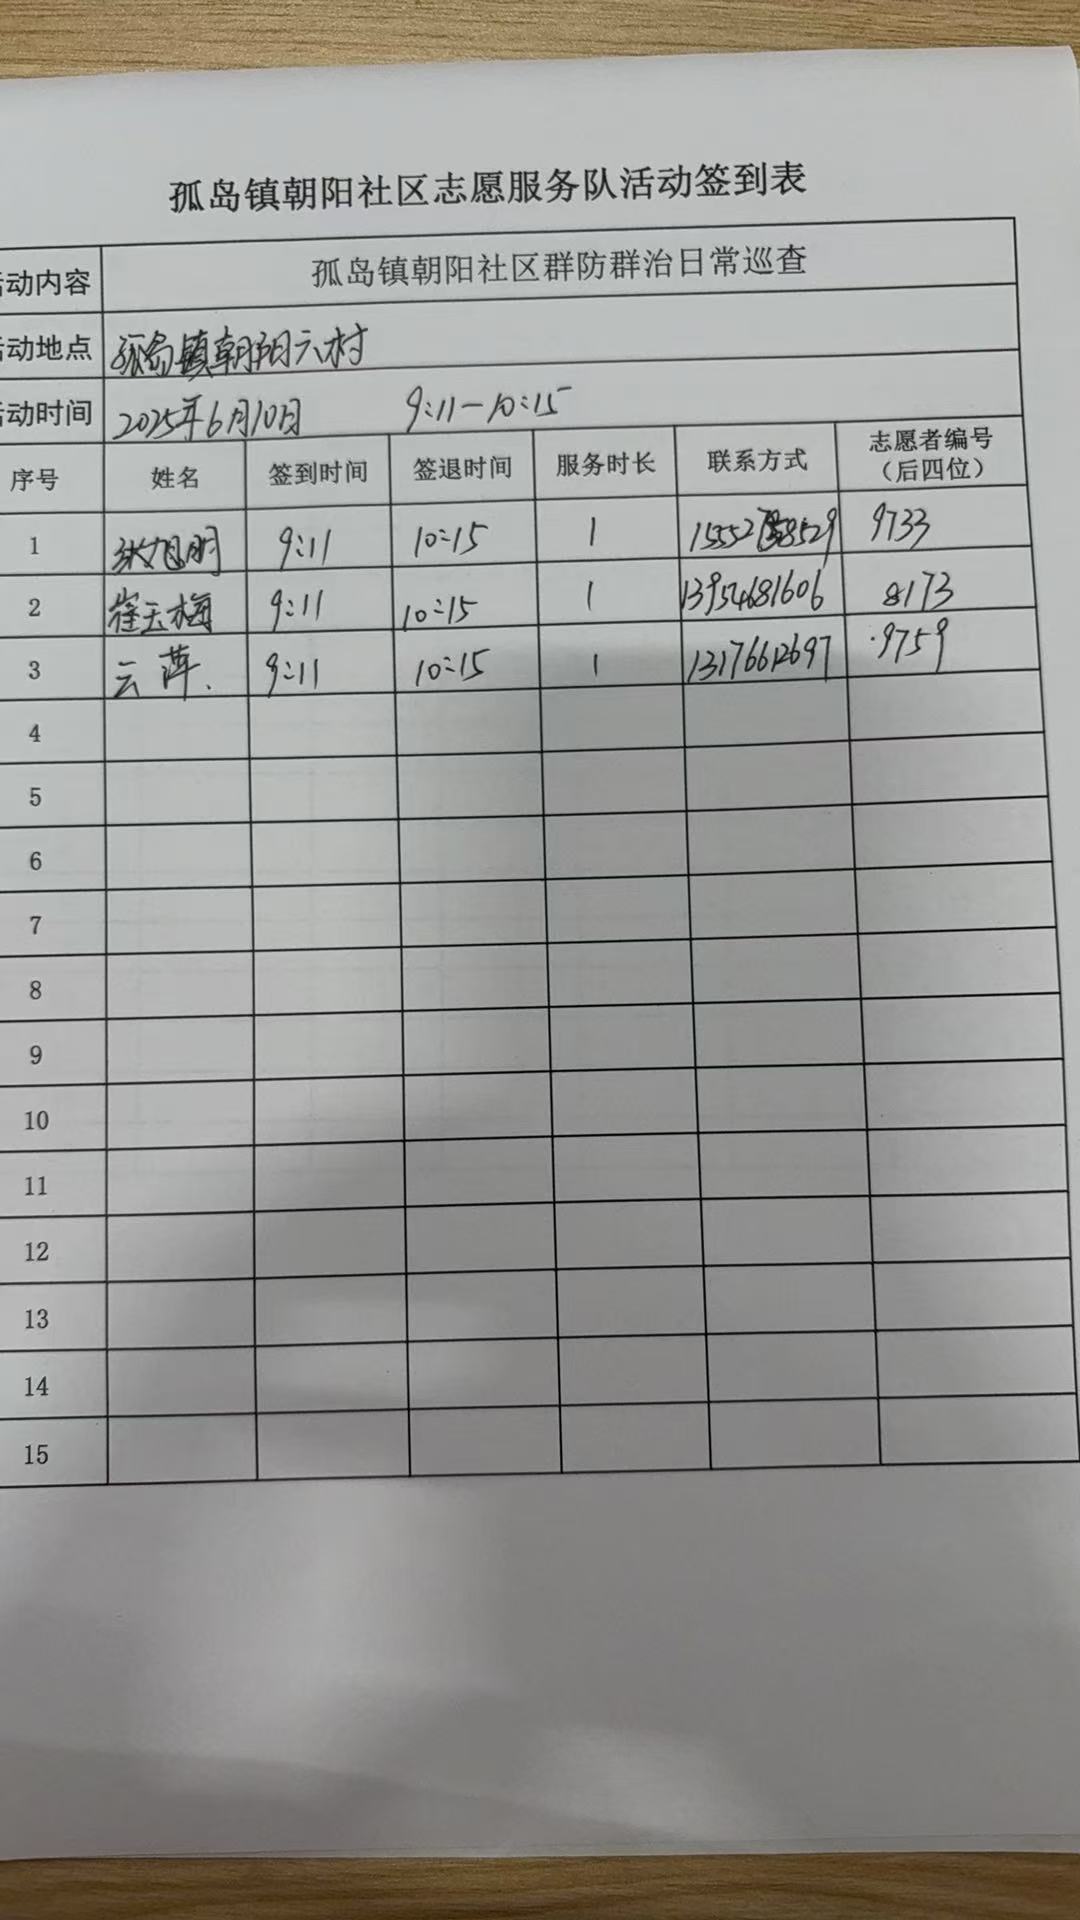 孤岛镇朝阳社区志愿服务队活动签到表
活动内容 孤岛镇朝阳社区群防群治日常巡查
活动地点 孤岛镇朝阳六村
活动时间 2025年6月10日 9:11-10:15
序号 姓名 签到时间 签退时间 服务时长 联系方式 志愿者编号(后四位)
1 张旭明 9:11 10:15 1 9733
2 崔玉梅 9:11 10:15 1 13954681606 8173
3 云萍 9:11 10:15 1 13176612697 9759
4
5
6
7
8
9
10
11
12
13
14
15